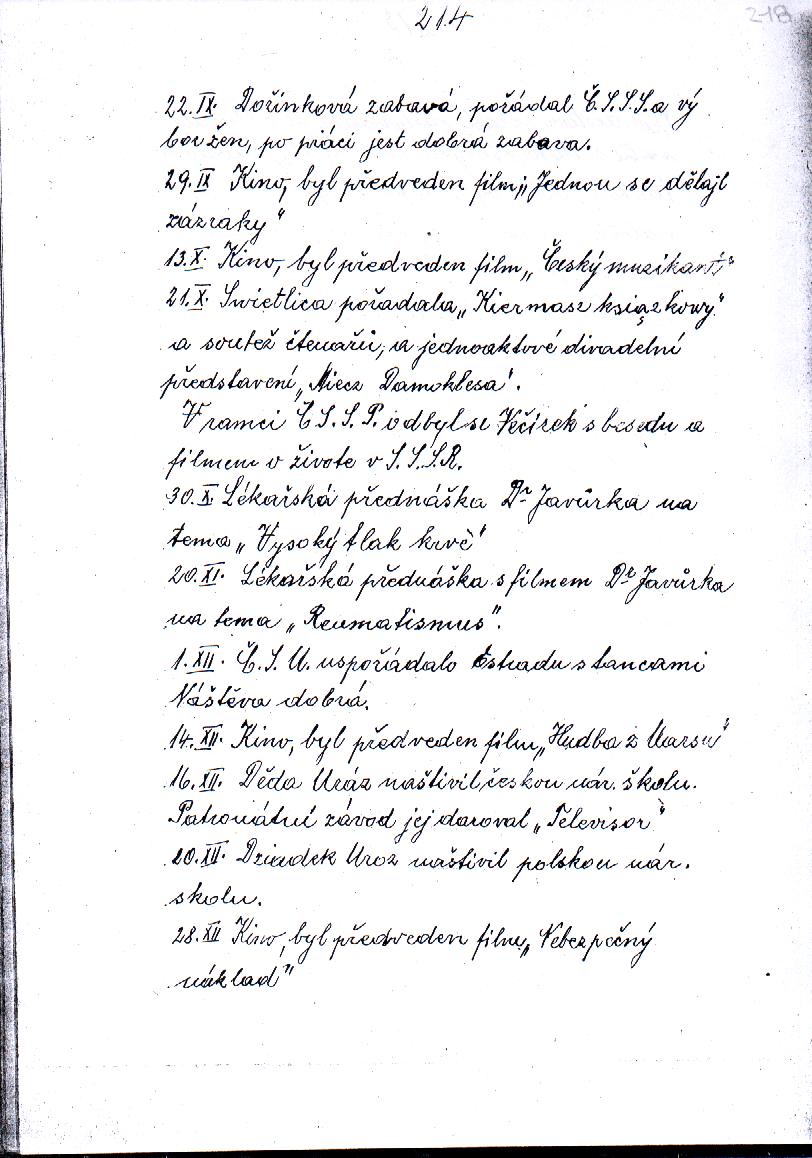 214
218
22.IX. Dožínková zabavá, pořádal Č.S.S.S. a vý
bor žen, po práci jest dobrá zabava.
29.IX Kino, byl předveden film, „Jednou se dělajl
zázraky“
13.X. Kino, byl předveden film „Český muzikant“
21.X. Swietlica pořadala „Kiermasz książkowy“
a soutež čtenařů, a jednoaktové divadelní
představení „Miecz Damoklesa“.
V ramci Č.S.S.P. odbyl se Večírek s besedu a
filmem o živote v S.S.S.R.
30.X. Lékařská přednáška Dr Javůrka na
tema „Vysoký tlak krvě“
20.XI. Lékařská přednáška s filmem Dr Javůrka
na tema „Reumatismus“.
1.XII. Č.S.M. uspořádalo Estradu s tancami
Náštěva dobrá.
14.XII. Kino, byl předveden film „Hudba z Marsu“
16.XII. Děda Mráz naštivil českou nár. školu.
Patronátní závod jej daroval „Televisor“
20.XII. Dziadek Mroz naštivil polskou nár.
skolu.
28.XII Kino, byl předveden film „Nebezpečný
náklad“